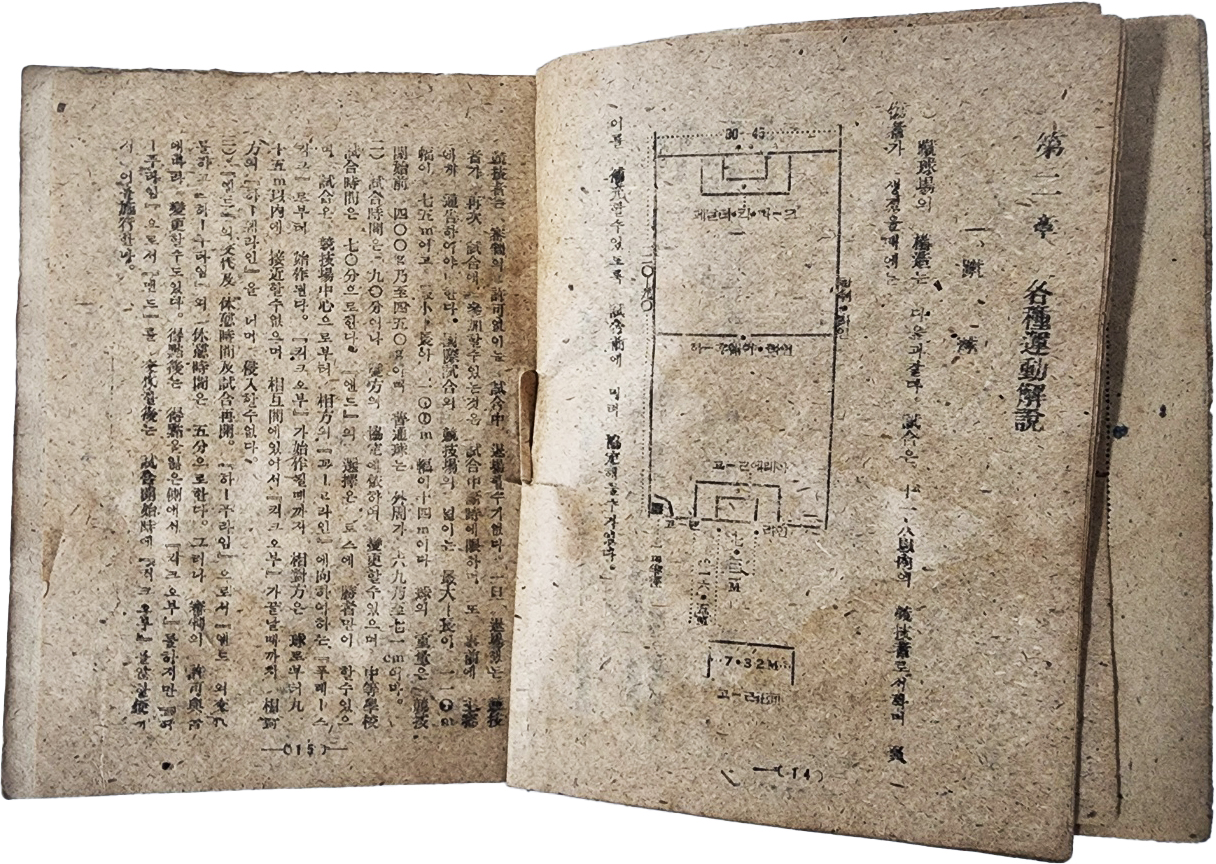 第二章 各種運動解說
一、蹴球
蹴球場의 構造는 다음과같며 試合은 十一人以內의 競技者로서하며
傷者가 생겻을때에는
60-45
페널티·킥·마-크
하-프웨이·라인
꼬-ㄹ에리아
꼬-ㄹ·라인
七·三二M
一六·五M
7·32M
이를 補充할수있도록 試合前에 미리 協定해둘수있다。
—(14)—
競技者는 審判의 許可없이는 試合中 退場할수가없다。一旦 退場한는 競技
者가 再次 試合에 參加할수있는것은 試合中斷時에限하며 또 事前에 主審
에게 通告하여야 한다。國際試合의 競技場의 넓이는 最大 長이 一一〇m
幅이 七五m이고 最小 長が 一〇〇m 幅이 六十四m이다 球의 重量은 競技
開始前 四〇〇g乃至四五〇g이며 普通球는 外周가 六九乃至七一cm이다。
(二) 試合時間은 九〇分이나 雙方의 協定에依하여 變更할수있으며 中等學校
試合時間은 七〇分으로한다。『엔드』의 選擇은 토스에 勝者만이 할수있으
며 試合은 競技場中心으로부터 相方의 『꼬-ㄹ라인』에向하여하는 『푸레-스
킥크』로부터 始作된다。『킥크오부』가始作될때까지 相對方은 球로부터九
十五m以內에 接近할수없으며 相互間에있어서 『킥크오부』가끝날때까지 相對
方의 『하-프라인』을 너머 侵入할수없다。
(三) 『엔드』의交代及 休憩時間及試合再開。『하-푸타임』으로서 『엔드』의交代
를하고 『하-푸타임』의 休憩時間은 五分으로한다。그러나 審判의 許可與否
에따라 變更할수도있다。得點後는 得點을잃은側에서 『킥크오부』를하지만 『하
-푸타임』으로서 『엔드』를 交代한後는 試合開始時에 『킥크오후』를않한便에
서 이를施行한다。
—(15)—